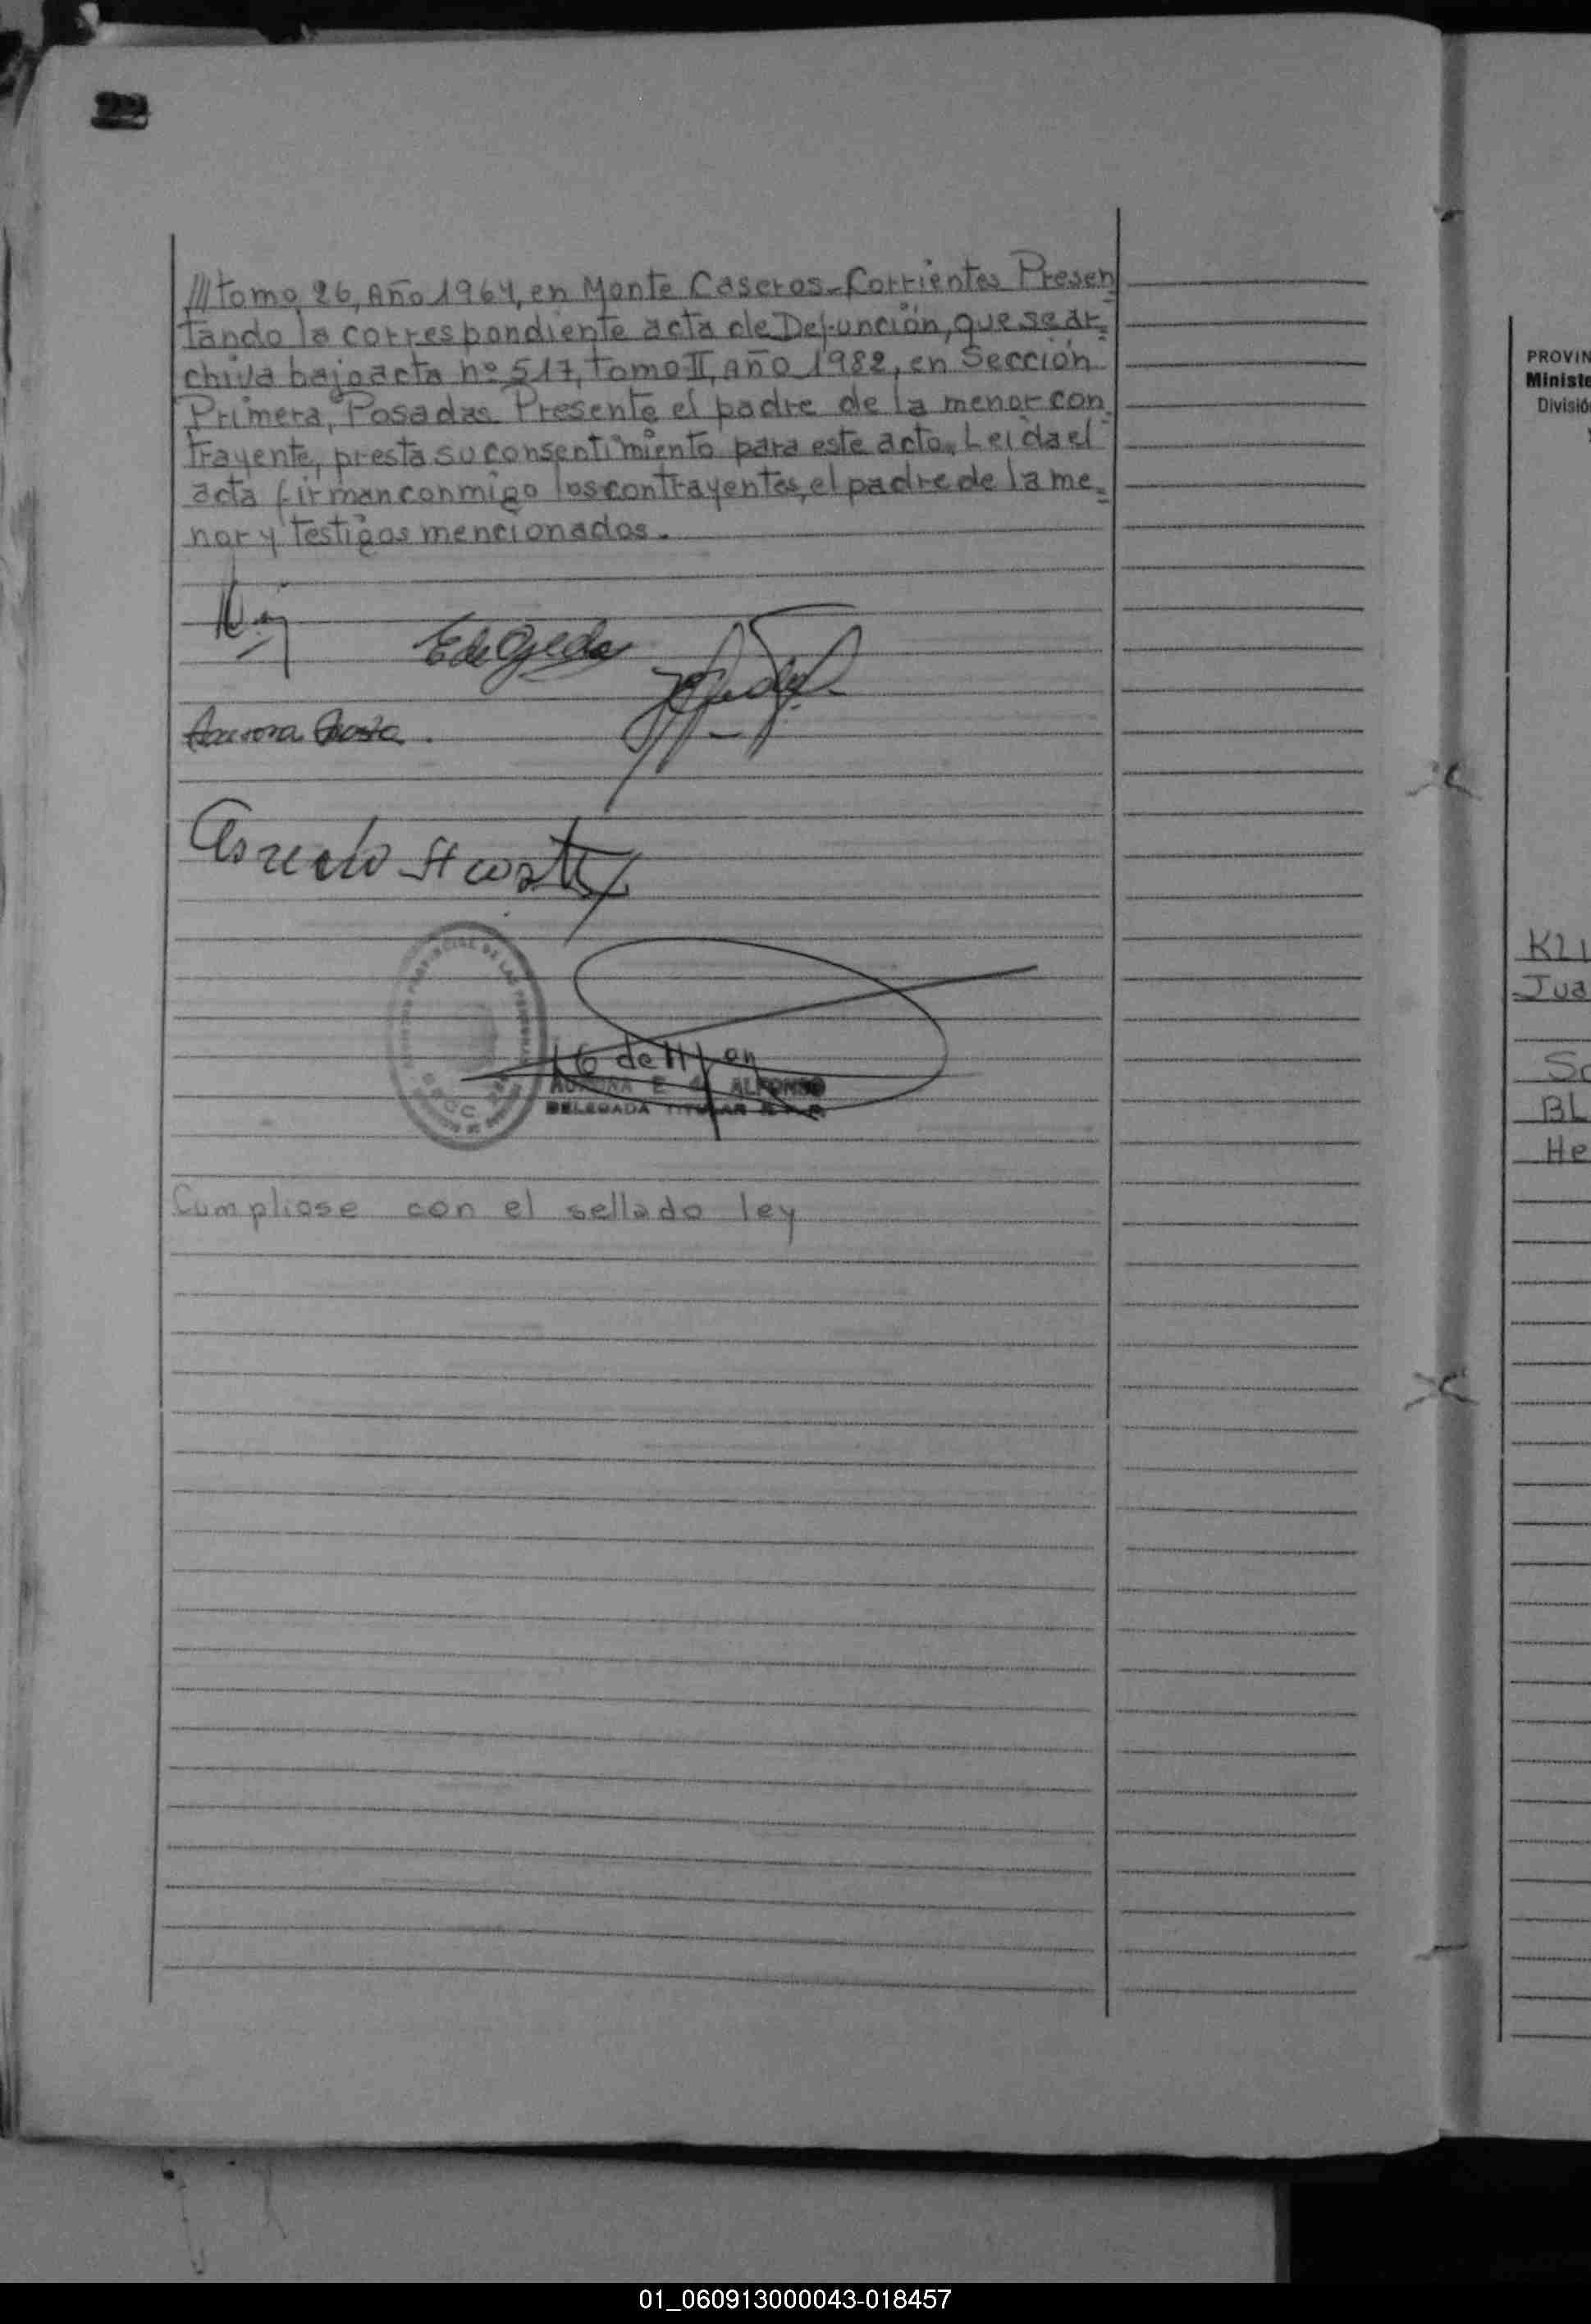 22
///tomo 26, Año 1964, en Monte Caseros-Corrientes Presen
tando la correspondiente acta de Defunción, que se ar=
chiva bajo acta nº 517, tomo II, año 1982, en Sección
Primera, Posadas. Presente el padre de la menor con
trayente, presta su consentimiento para este acto. Leida el
acta firman conmigo los contrayentes, el padre de la me=
nor y testigos mencionados.
E de Ojeda
Aurora
AURORA E. ALFONSO
DELEGADA TITULAR
Cumpliose con el sellado ley
PROVIN
Ministe
Divisió
KLI
Jua
BL
He
01_060913000043-018457